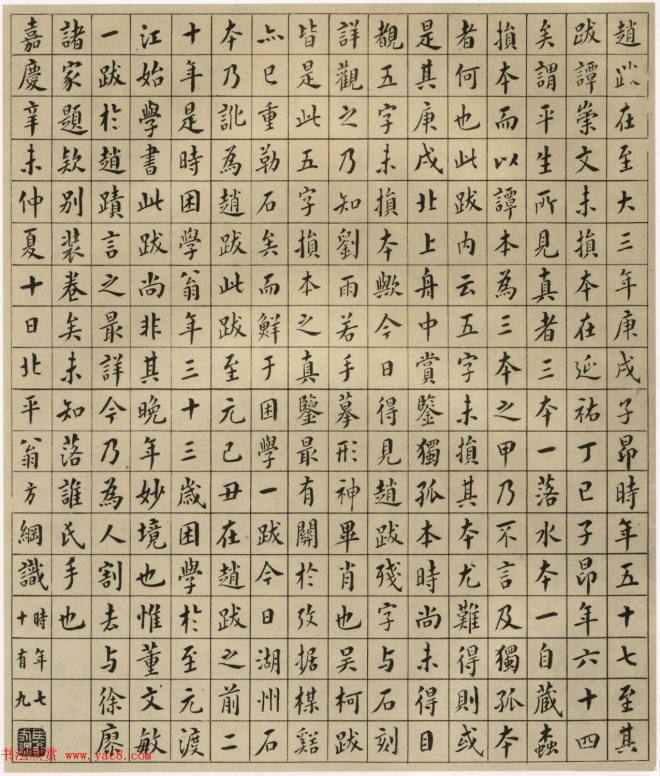 趙跋在至大三年庚戌子昂時年五十七至其
跋譚崇文未損本在延祐丁巳子昂年六十四
矣謂平生所見真者三本一落水本一自藏蠹
損本而以譚本為三本之甲乃不言及獨孤本
者何也此跋內云五字未損其本尤難得則或
是其庚戌北上舟中賞鑒獨孤本時尚未得目
覩五字未損本歟今日得見趙跋殘字與石刻
詳觀之乃知劉雨若手摹形神畢肖也吳柯跋
皆是此五字損本之真鑒最有關於攷據楳谿
亦已重勒石矣而鮮于困學一跋今日湖州石
本乃訛為趙跋此跋至元己丑在趙跋之前二
十年是時困學翁年三十三歲困學於至元渡
江始學書此跋尚非其晚年妙境也惟董文敏
一跋於趙蹟言之最詳今乃為人割去與徐廖
諸家題欵別裝卷矣未知落誰氏手也
嘉慶辛未仲夏十日北平翁方綱識時年七十有九
书法欣赏 www.yac8.com